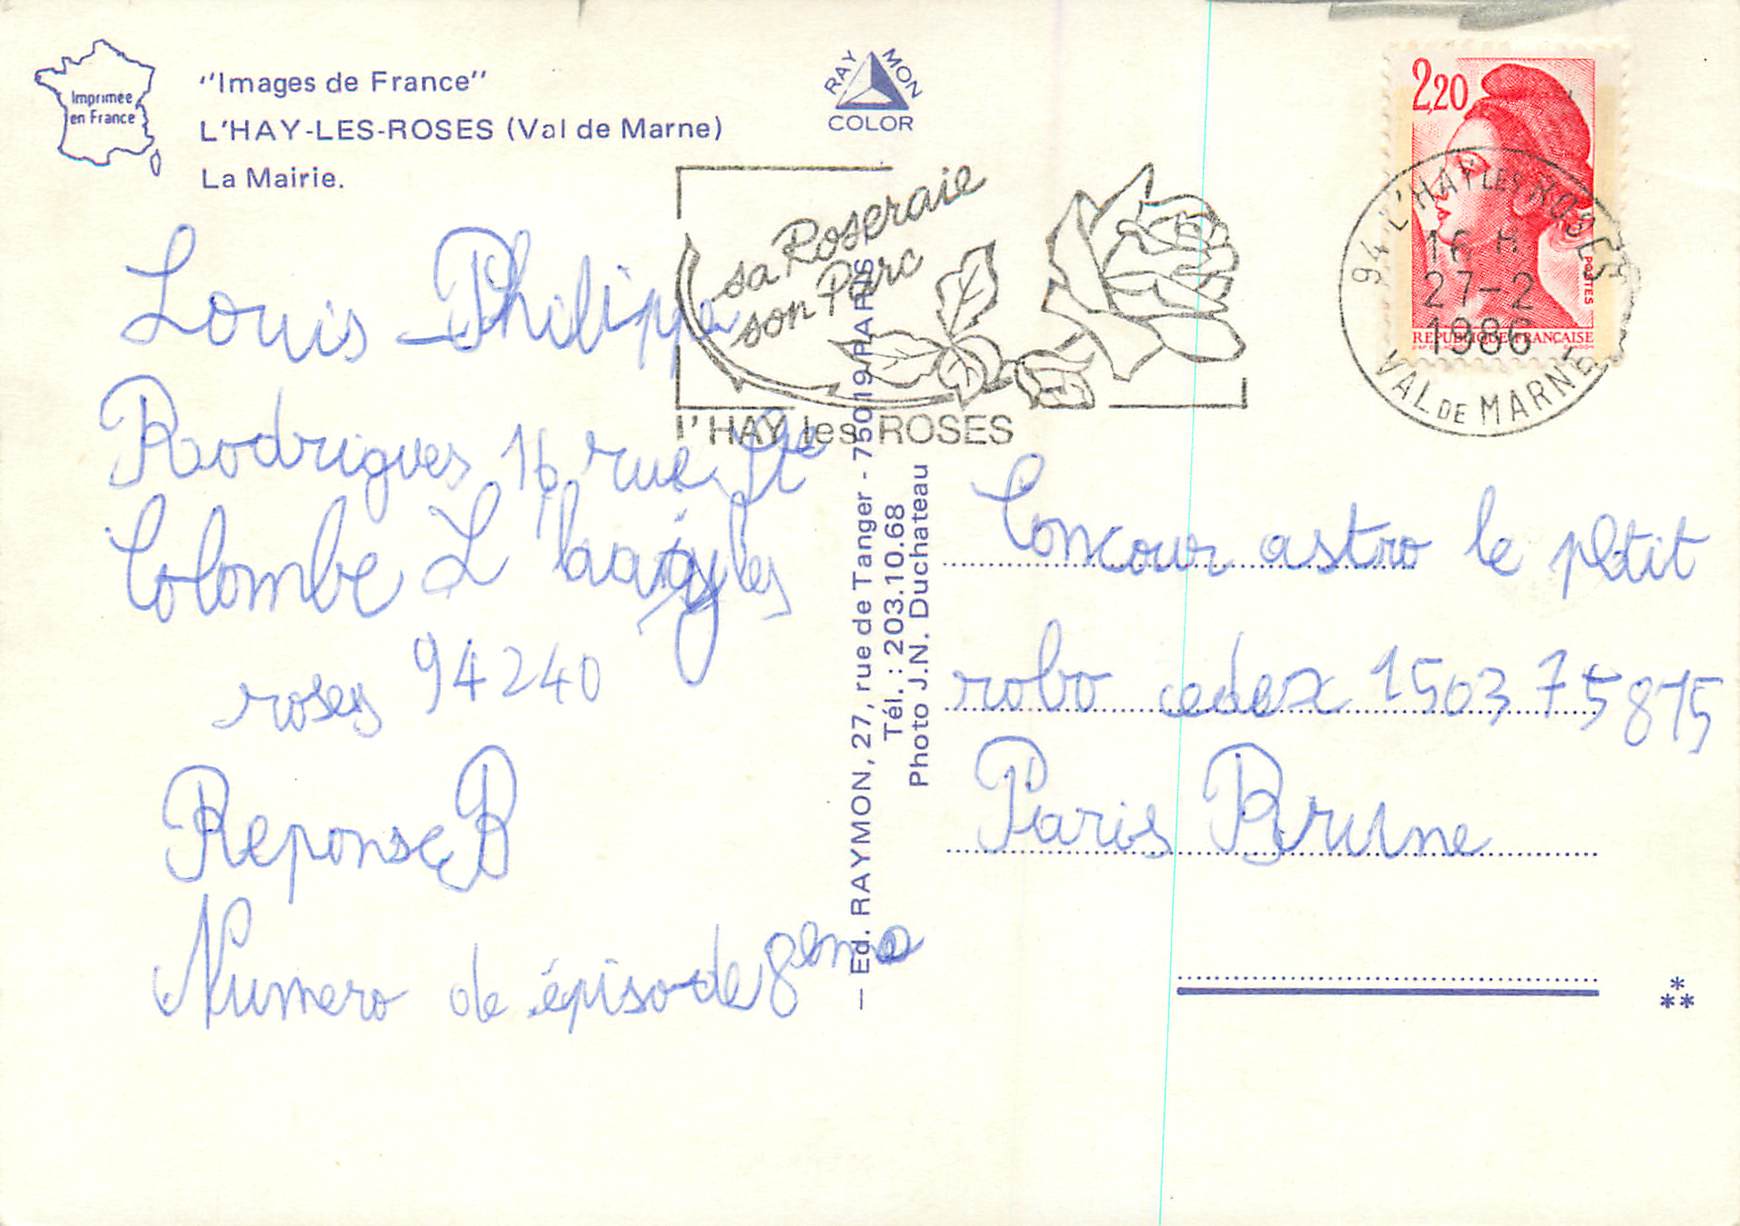 Imprimée
en France
"Images de France"
L'HAY-LES-ROSES (Val de Marne)
La Mairie.
RAYMON
COLOR
2,20
POSTES
REPUBLIQUE FRANÇAISE
94 L'HAY LES ROSES
16 H
27-2
1986
VAL DE MARNE
sa Roseraie
son Parc
l'HAY les ROSES
Louis Philippe
Rodrigues 16 rue Ste
Colombe L'hay les
roses 94240
Reponse B
Numero de épisode 8eme
— Ed. RAYMON, 27, rue de Tanger - 75019 PARIS
Tél. : 203.10.68
Photo J.N. Duchateau
Concour astro le ptit
robo cedex 1503 75815
Paris Brune
*
**